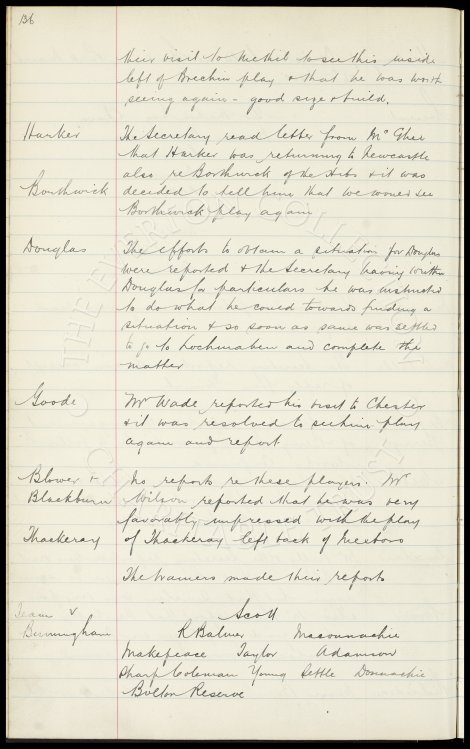 136
their visit to Methil to see this inside
left of Brechin play & that he was worth
seeing again - good size & build.
Harker The Secretary read letter from Mr Ghee
that Harker was returning to Newcastle
also re Borthwick of the Hibs & it was
Borthwick decided to tell him that we would see
Borthwick play again
Douglas The efforts to obtain a situation for Douglas
were reported & the Secretary having written
Douglas for particulars he was instructed
to do what he could towards finding a
situation & so soon as same was settled
to go to Lochmaben and complete the
matter
Goode Mr Wade reported his visit to Chester
& it was resolved to see him play
again and report
Blower & No reports re these players. Mr
Blackburn Wilson reported that he was very
favorably impressed with the play
Thackeray of Thackeray left back of Mexboro
The trainers made their reports
Team v Scott
Birmingham R Balmer Maconnachie
Makepeace Taylor Adamson
Sharp Coleman Young Settle Donnachie
Bolton Reserve
© THE EVERTON COLLECTION